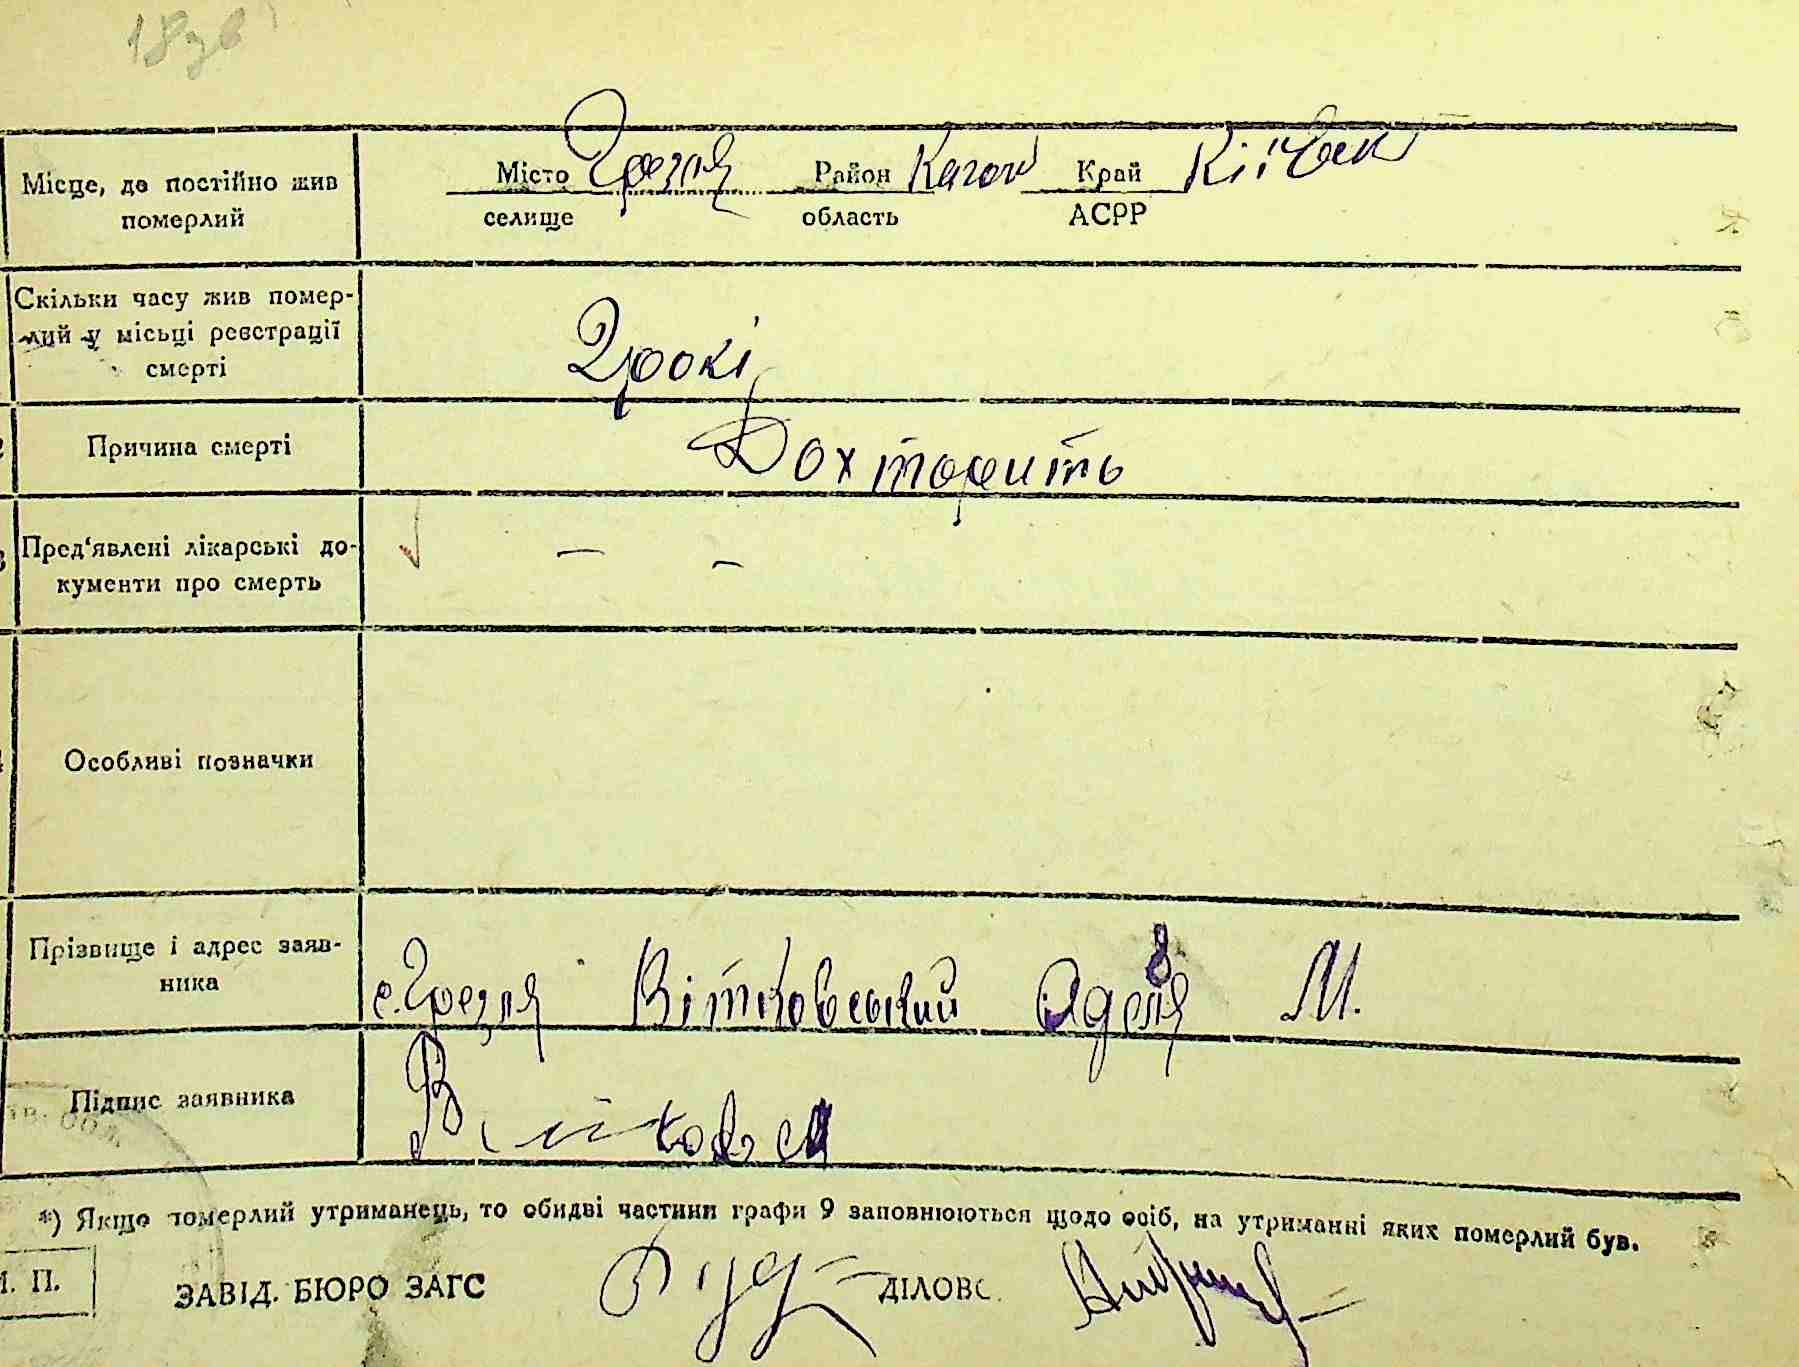 18зв
Місце, де постійно жив
померлий
Місто Грезля Район Каган Край Київськ
селище область АСРР
Скільки часу жив помер-
лий у місьці реєстрації
смерті
2 рокі
Причина смерті
Дохтарить
Пред'явлені лікарські до-
кументи про смерть
√ – –
Особливі позначки
Прізвище і адрес заяв-
ника
с. Грезля Вітковський Аделя М.
Підпис заявника
*) Якщо померлий утриманець, то обидві частини графи 9 заповнюються щодо осіб, на утриманні яких померлий був.
М. П.
ЗАВІД. БЮРО ЗАГС
ДІЛОВ